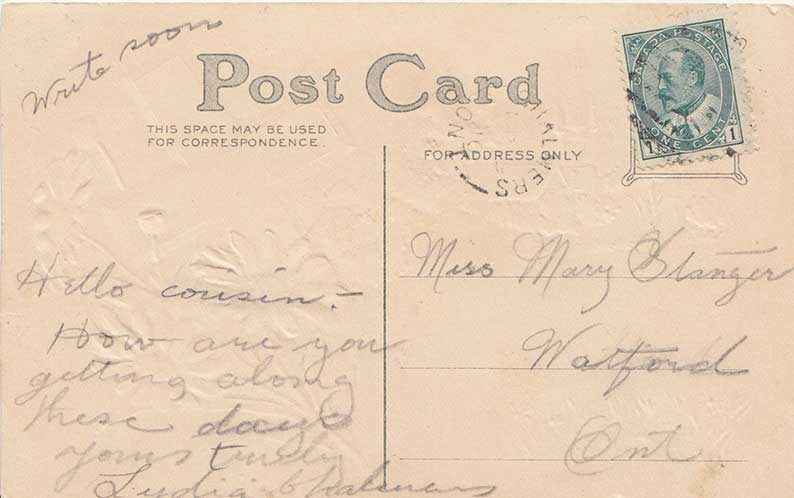 Write soon
Post Card
THIS SPACE MAY BE USED
FOR CORRESPONDENCE.
FOR ADDRESS ONLY
CANADA POSTAGE
ONE CENT
1 1
CHALMERS
ONT.
Hello cousin:-
How are you
getting along
these days
yours truly
Lydia Chalmers
Miss Mary Stanger
Watford
Ont